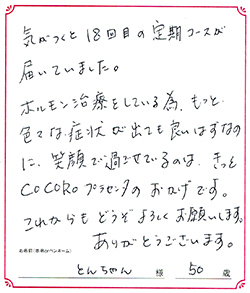 気がつくと18回目の定期コースが
届いていました。
ホルモン治療をしている為、もっと
色々な症状が出ても良いはずなの
に、笑顔で過ごせているのは、きっと
COCOROプラセンタのおかげです。
これからもどうぞよろしくお願いします。
ありがとうございます。
お名前（本名orペンネーム） とんちゃん 様 50 歳